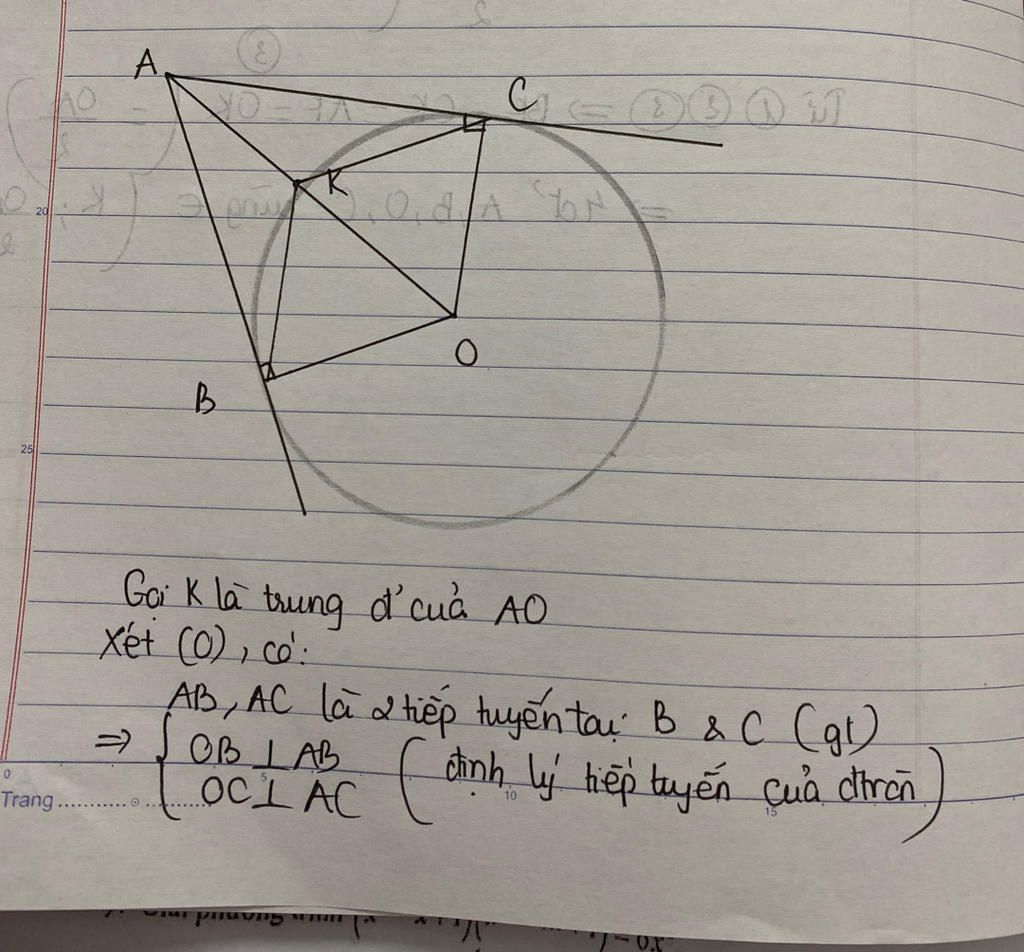 A
C
K
O
B
20
25
Gọi K là trung đ' của AO
Xét (O), có:
AB, AC là 2 tiếp tuyến tại B & C (gt)
=> { OB ⊥ AB
OC ⊥ AC ( định lý tiếp tuyến của đtròn )
0 5 10 15
Trang